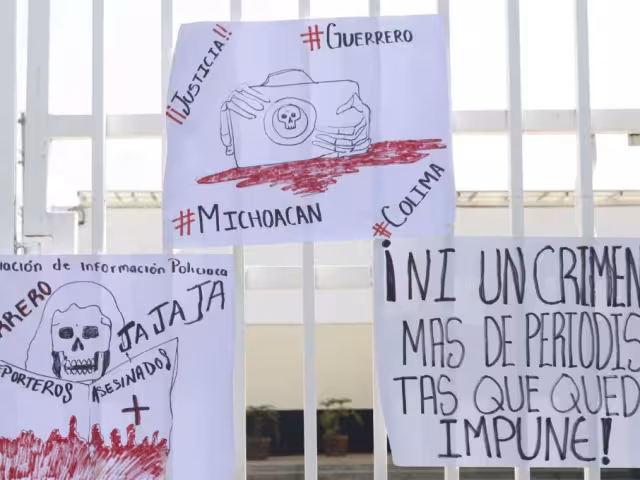 ¡¡JUSTICIA!!
#GUERRERO
#MICHOACAN
#COLIMA
de Información Policiaca
JAJAJA
ASESINADO
¡NI UN CRIMEN
MAS DE PERIODIS
TAS QUE QUED
IMPUNE!